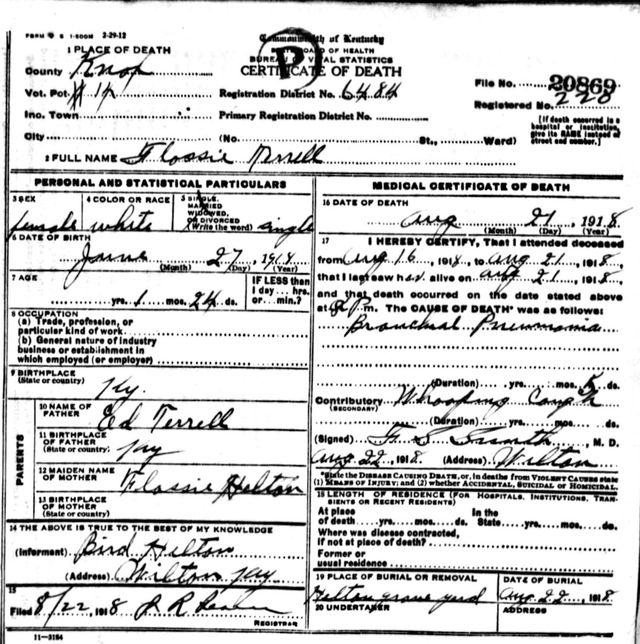 FORM 1-500M 2-29-12
Commonwealth of Kentucky
BOARD OF HEALTH
BUREAU VITAL STATISTICS
CERTIFICATE OF DEATH
P
1 PLACE OF DEATH
County Knox
Vot. Pct # 14 Registration District No. 6484
File No. 20869
Registered No. 220
Inc. Town Primary Registration District No.
City (No. St., Ward)
[If death occurred in a hospital or institution, give its NAME instead of street and number.]
2 FULL NAME Flossie Terrell
PERSONAL AND STATISTICAL PARTICULARS
3 SEX female
4 COLOR OR RACE white
5 SINGLE, MARRIED WIDOWED, OR DIVORCED (Write the word) single
6 DATE OF BIRTH
June 27, 1918
(Month) (Day) (Year)
7 AGE
yrs. 1 mos. 24 ds.
IF LESS than 1 day... hrs. or min.?
8 OCCUPATION
(a) Trade, profession, or particular kind of work
(b) General nature of industry business or establishment in which employed (or employer)
9 BIRTHPLACE
(State or country) Ky.
PARENTS
10 NAME OF FATHER Ed Terrell
11 BIRTHPLACE OF FATHER
(State or country) Ky
12 MAIDEN NAME OF MOTHER Flossie Helton
13 BIRTHPLACE OF MOTHER
(State or country)
14 THE ABOVE IS TRUE TO THE BEST OF MY KNOWLEDGE
(Informent) Bird Helton
(Address) Wilton Ky
15
Filed 8/22, 1918 J R
REGISTRAR
11-3184
MEDICAL CERTIFICATE OF DEATH
16 DATE OF DEATH
Aug 21, 1918
(Month) (Day) (Year)
17 I HEREBY CERTIFY, That I attended deceased
from Aug 16, 1918, to Aug 21, 1918,
that I last saw her alive on Aug 21, 1918,
and that death occurred on the date stated above
at P m. The CAUSE OF DEATH* was as follows:
Bronchial Pneumonia
(Duration) yrs. mos. 5 ds.
Contributory Whooping Cough
(SECONDARY)
(Duration) yrs. mos. ds.
(Signed) Smith, M. D.
Aug 22, 1918. (Address) Wilton
*State the DISEASE CAUSING DEATH, or, in deaths from VIOLENT CAUSES state
(1) MEANS OF INJURY; and (2) whether ACCIDENTAL, SUICIDAL or HOMICIDAL.
18 LENGTH OF RESIDENCE (FOR HOSPITALS, INSTITUTIONS, TRANSIENTS OR RECENT RESIDENTS)
At place of death yrs. mos. ds. In the State yrs. mos. ds.
Where was disease contracted,
if not at place of death?
Former or
usual residence
19 PLACE OF BURIAL OR REMOVAL
Helton grave yard
DATE OF BURIAL
Aug 22, 1918
20 UNDERTAKER
ADDRESS